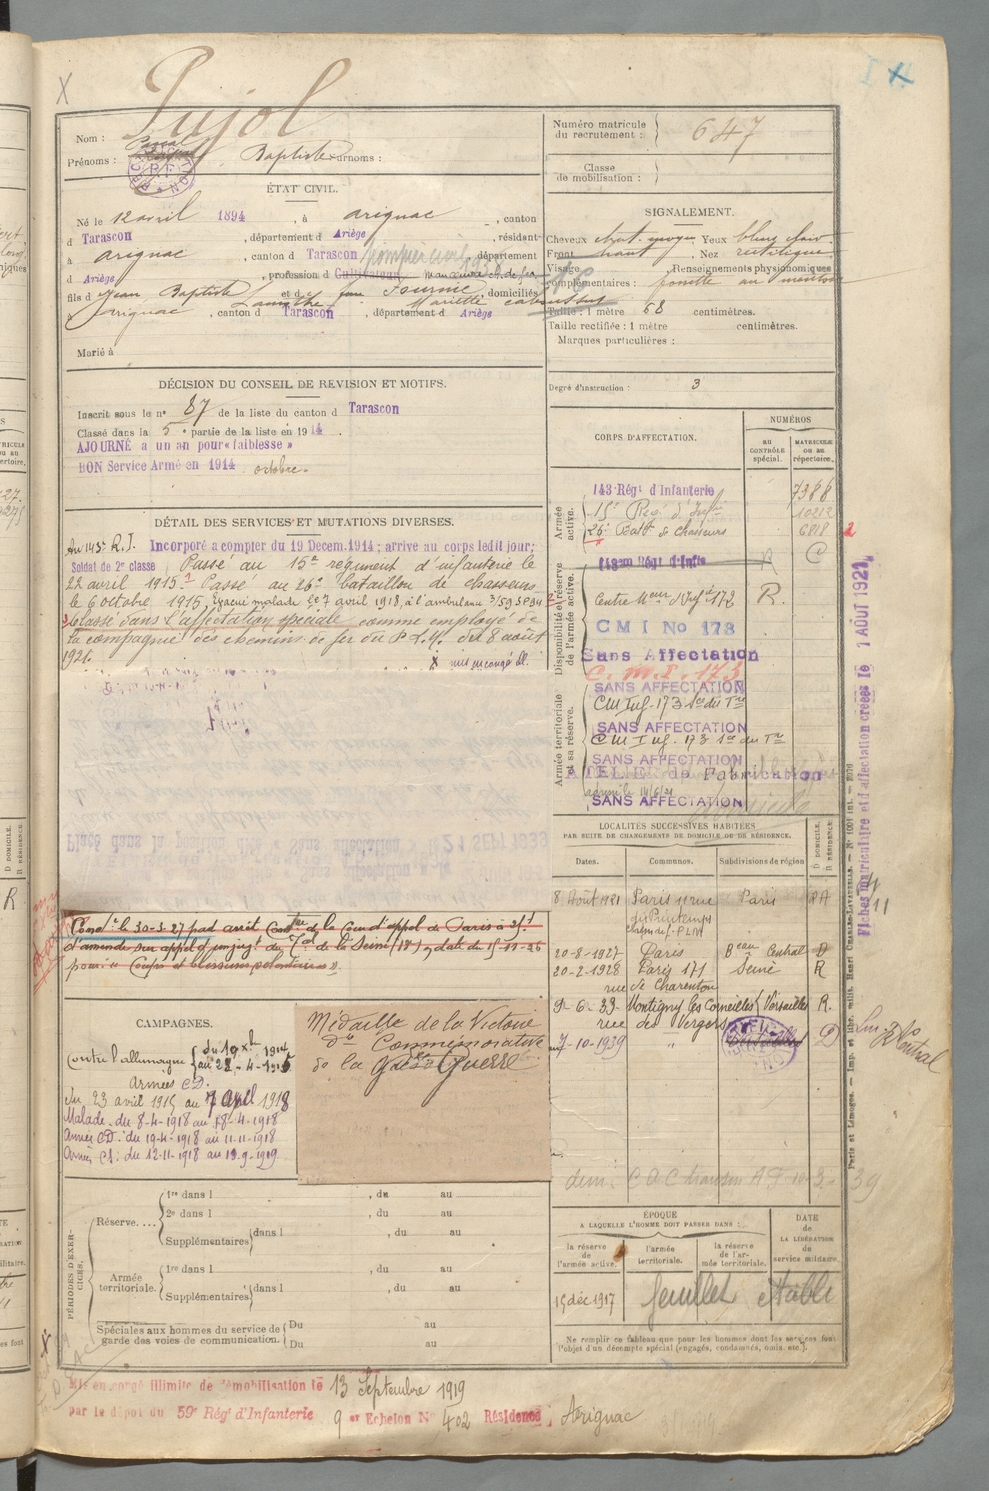 Pujol
Nom :
Pascal
Prénoms : Baptiste surnoms :
Numéro matricule du recrutement : 647
Classe de mobilisation :
ÉTAT CIVIL.
Né le 12 avril 1894, à Arignac, canton
d Tarascon, département d Ariège, résidant
à Arignac, canton d Tarascon, département
d Ariège, profession d Cultivateur manœuvre ch. de fer
fils d Jean Baptiste et d Fournié, domiciliés
à Arignac, canton d Tarascon, département d Ariège
Marié à
SIGNALEMENT.
Cheveux chat. moyen Yeux bleu clair
Front haut, Nez rectiligne
Visage, Renseignements physionomiques
complémentaires : fossette au menton
Taille : 1 mètre 68 centimètres.
Taille rectifiée : 1 mètre centimètres.
Marques particulières :
Degré d'instruction : 3
DÉCISION DU CONSEIL DE REVISION ET MOTIFS.
Inscrit sous le n° 87 de la liste du canton d Tarascon
Classé dans la 5e partie de la liste en 1914.
AJOURNÉ a un an pour « faiblesse »
BON Service Armé en 1914 octobre.
DÉTAIL DES SERVICES ET MUTATIONS DIVERSES.
Au 143e R.I. Incorporé a compter du 19 Decem. 1914 ; arrive au corps ledit jour;
Soldat de 2e classe Passé au 15e régiment d'infanterie le
22 avril 1915. Passé au 26e bataillon de chasseurs
le 6 octobre 1915, évacué malade le 7 avril 1918, à l'ambulance 3/59 SP 94
Classé dans l'affectation spéciale comme employé de
la compagnie des chemins de fer du P.L.M. du 8 août
1921.
X mis en congé ill.
Placé dans la position dite « Sans affectation » 21 SEPT 1939
Cond. le 30-3-27 par arrêt Contre de la Cour d'appel de Paris à 25f
d'amende sur appel d'un jugt du Tal de la Seine
pour « Coups et blessures volontaires ».
CORPS D'AFFECTATION.
NUMÉROS
AU CONTRÔLE spécial.
MATRICULE OU AU répertoire.
Armée active.
143 Régt d'Infanterie 7388
15e Régt d'Inftie 10212
26e Batln de Chasseurs 6818
Disponibilité et réserve de l'armée active.
Centre Mour d'Inf. 173 R.
C M I No 173
Sans Affectation
C.M.I. 173
Armée territoriale et sa réserve.
SANS AFFECTATION
CM Inf. 173
SANS AFFECTATION
CM Inf. 173
SANS AFFECTATION
ATELIER de Fabrication
SANS AFFECTATION
LOCALITÉS SUCCESSIVES HABITÉES
PAR SUITE DE CHANGEMENTS DE DOMICILE OU DE RÉSIDENCE.
Dates. Communes. Subdivisions de région D DOMICILE. R RÉSIDENCE
8 Août 1921 Paris 11 rue du Printemps chem. f. PLM Paris RA
20-8-1927 Paris Beau Central D
20-2-1928 Paris 171 rue de Charenton Seine R
9-6-33 Montigny les Corneilles rue des Vergers Versailles R.
7-10-1939 " D
CAMPAGNES.
Contre l'allemagne du 19 Xbre 1914 au 22-4-1915
Armées CD.
du 23 avril 1915 au 7 Avril 1918
Malade du 8-4-1918 au 18-4-1918
Armées CD. du 19-4-1918 au 11-11-1918
Armées CS. du 12-11-1918 au 19.9.1919
Médaille de la Victoire
do Commémorative
de la Gde Guerre
PÉRIODES D'EXERCICES.
Réserve.... 1re dans l , du au
2e dans l , du au
Supplémentaires dans l , du au
Armée territoriale. 1re dans l , du au
Supplémentaires dans l , du au
Spéciales aux hommes du service de garde des voies de communication. Du au
Du au
ÉPOQUE
A LAQUELLE L'HOMME DOIT PASSER DANS :
la réserve de l'armée active.
l'armée territoriale.
la réserve de l'armée territoriale.
DATE de LA LIBÉRATION du service militaire.
15 déc 1917 feuillet établi
Ne remplir ce tableau que pour les hommes dont les services font l'objet d'un décompte spécial (engagés, condamnés, omis, etc.).
Mis en congé illimité de démobilisation le 13 Septembre 1919
par le dépôt du 59e Régt d'Infanterie 9e Echelon No 402 Résidence Arignac
Fiches matriculaire et d'affectation créées le 1 AOUT 1921
Paris et Limoges. — Imp. et libr. milit. Henri CHARLES-LAVAUZELLE.